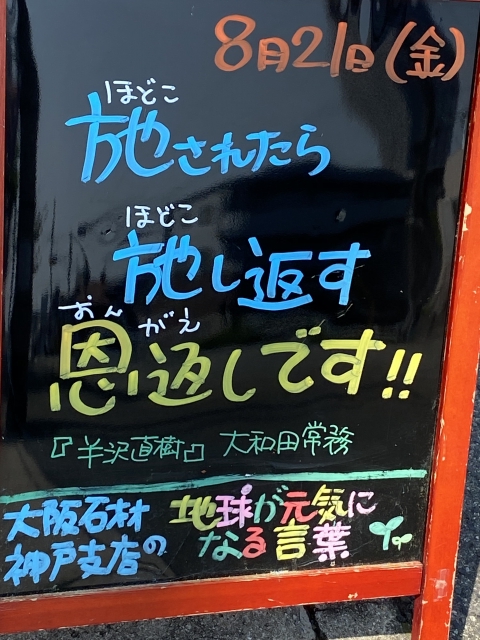 8月21日(金)
ほどこ
施されたら
ほどこ
施し返す
おんがえ
恩返しです!!
『半沢直樹』 大和田常務
大阪石材
神戸支店の
地球が元気に
なる言葉